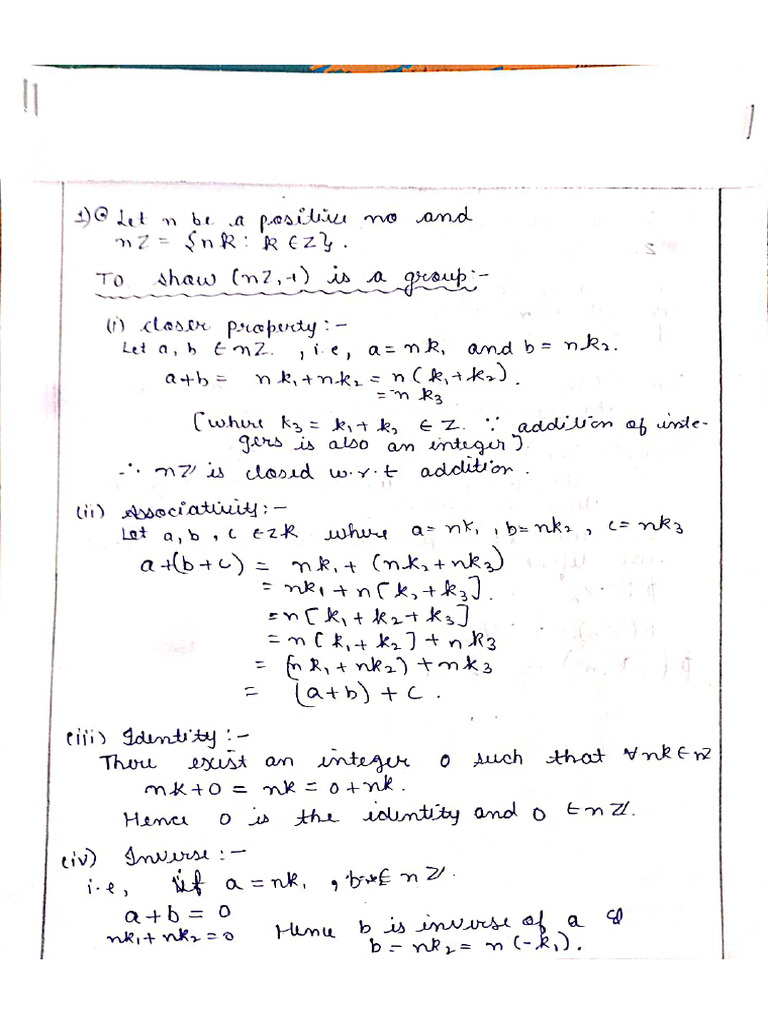 1) ⓐ Let n be a positive no and
nZ = {nk : k ∈ Z}.
To show (nZ, +) is a group:-
(i) closer property:-
Let a, b ∈ nZ. , i.e, a = nk₁ and b = nk₂.
a+b = nk₁+nk₂ = n(k₁+k₂).
= n k₃
[where k₃ = k₁+k₂ ∈ Z. ∵ addition of inte-
gers is also an integer].
∴ nZ is closed w.r.t addition.
(ii) Associativity:-
Let a, b, c ∈ zk where a = nk₁, b = nk₂, c = nk₃
a+(b+c) = nk₁ + (nk₂+nk₃)
= nk₁ + n[k₂+k₃].
= n[k₁+k₂+k₃]
= n[k₁+k₂] + nk₃
= (nk₁+nk₂)+nk₃
= (a+b)+c.
(iii) Identity:-
There exist an integer 0 such that ∀nk∈nZ
nk+0 = nk = 0+nk.
Hence 0 is the identity and 0 ∈ nZ.
(iv) Inverse:-
i.e, if a = nk₁, b ∈ nZ.
a+b = 0
nk₁+nk₂=0 Hence b is inverse of a &
b = nk₂ = n(-k₁).